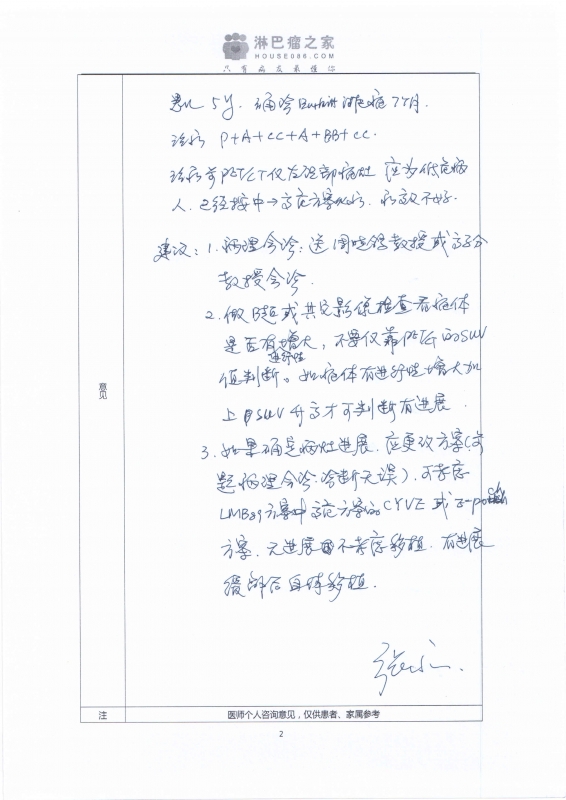 淋巴瘤之家
HOUSE086.COM
只有病友最懂你
患儿 5岁. 确诊Burkitt淋巴瘤7个月.
治疗 P+A+CC+A+BB+CC.
治疗前PET/CT仅为 部病灶 应为低危病
人. 已经按中→高危方案化疗. 疗效不好.
建议: 1. 病理会诊: 送周晓鸽教授或高子芬
教授会诊.
2. 做B超或共 影像检查看瘤体
是否有增大, 不要仅靠PET/CT的SUV
值判断。如瘤体有进行性增大加
上SUV升高才可判断有进展.
3. 如果确定病灶进展. 应更改方案(
病理会诊:诊断无误). 可考虑
LMB89方案中高危方案的CYVE 或
方案. 无进展 不考虑移植. 有进展
缓解后自体移植.
意见
注
医师个人咨询意见，仅供患者、家属参考
2